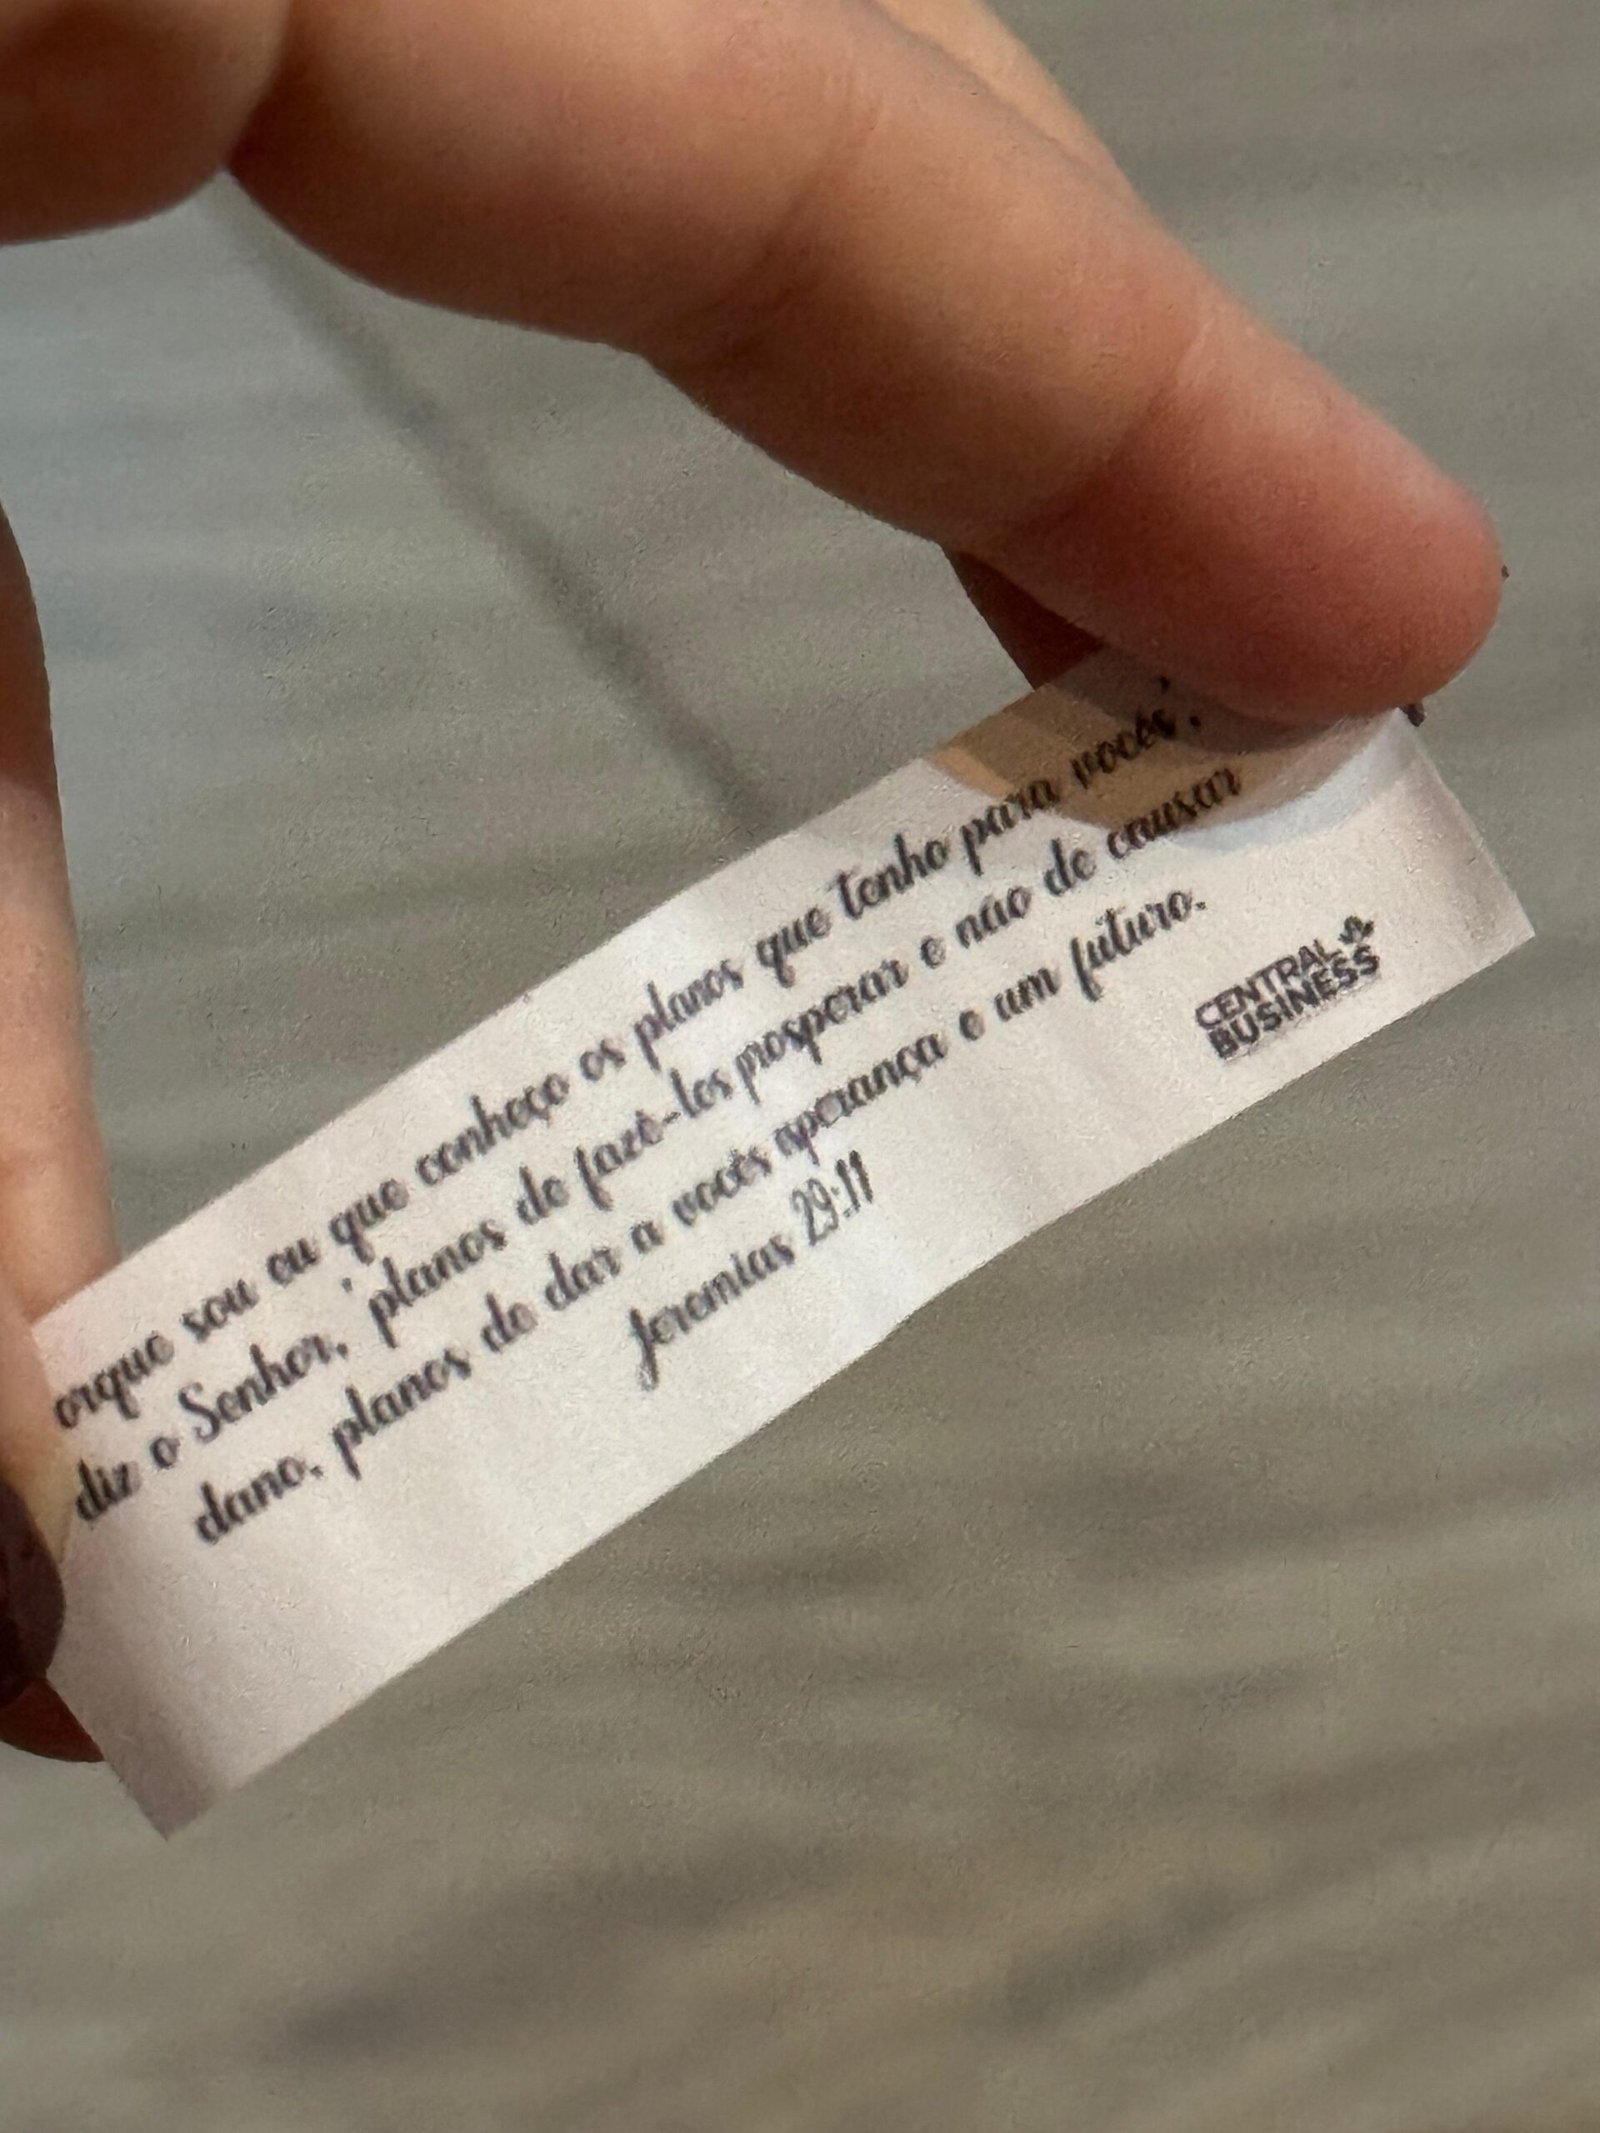 orque sou eu que conheço os planos que tenho para vocês',
diz o Senhor, 'planos de fazê-los prosperar e não de causar
dano, planos de dar a vocês sperança e um futuro.
Jeremias 29:11
CENTRAL
BUSINESS